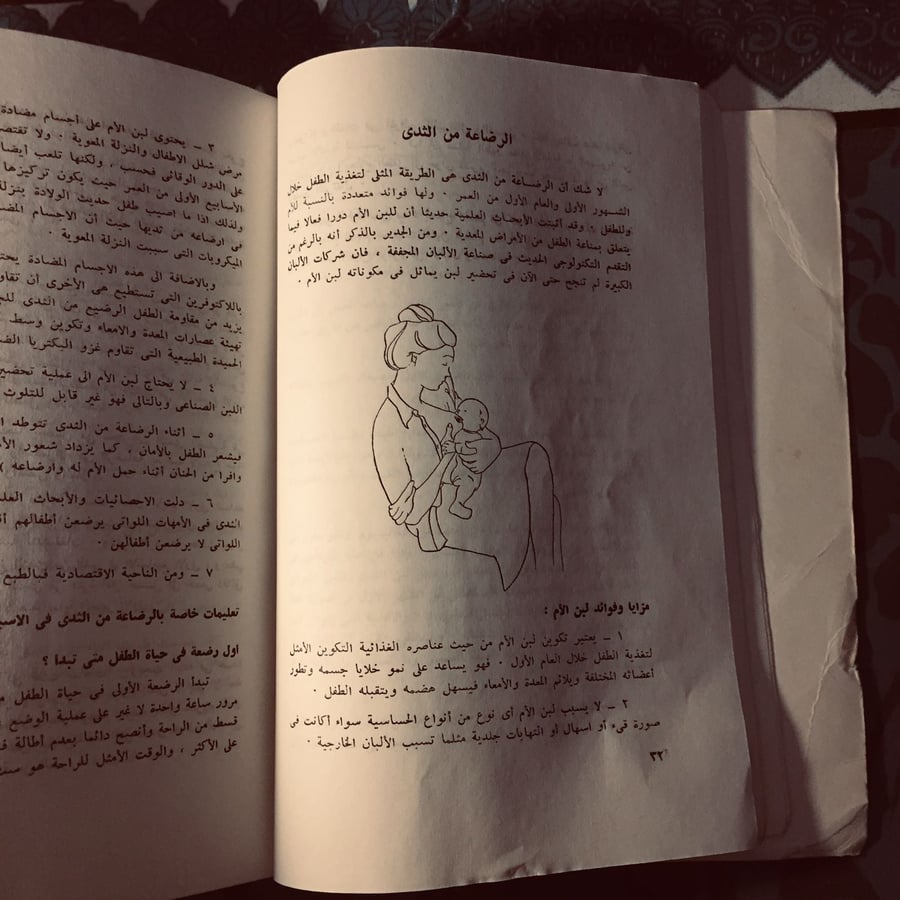 الرضاعة من الثدى
لا شك أن الرضـاعة من الثدى هى الطريقة المثلى لتغذية الطفل خلال
الشـهور الأولى والعام الأول من العمر ٠ ولها فوائد متعددة بالنسبة للأم
وللطفل ٠ وقد أثبتت الأبحاث العلمية حديثا أن للبن الأم دورا فعالا فيما
يتعلق بمناعة الطفل من الأمراض المعدية ٠ ومن الجدير بالذكر أنه بالرغم من
التقدم التكنولوجى الحديث فى صناعة الألبان المجففة ، فان شركات الألبان
الكبيرة لم تنجح حتى الآن فى تحضير لبن يماثل فى مكوناته لبن الأم ٠
مزايا وفوائد لبن الأم :
١ ــ يعتبر تكوين لبن الأم من حيث عناصره الغذائية التكوين الأمثل
لتغذية الطفل خلال العام الأول ٠ فهو يساعد على نمو خلايا جسمه وتطور
أعضائه المختلفة ويلائم المعدة والأمعاء فيسهل هضمه ويتقبله الطفل ٠
٢ ــ لا يسبب لبن الأم أى نوع من أنواع الحساسية سواء أكانت فى
صورة قىء أو اسهال أو التهابات جلدية مثلما تسبب الألبان الخارجية ٠
٣٢
٣ ــ يحتوى لبن الأم على أجسام مضادة
مرض شلل الاطفال والنزلة المعوية ٠ ولا تقتصر
على الدور الوقائى فحسب ، ولكنها تلعب أيضا
الأسابيع الأولى من العمر حيث يكون تركيزها
ولذلك اذا ما اصيب طفل حديث الولادة بنزلة
فى ارضاعه من ثديها حيث أن الاجسام
الميكروبات التى سببت النزلة المعوية ٠
وبالاضافة الى هذه الاجسام المضادة
باللاكتوفرين التى تستطيع هى الأخرى أن
يزيد من مقاومة الطفل الرضيع من الثدى
تهيئة عصارات المعدة والامعاء وتكوين وسط
الحميدة الطبيعية التى تقاوم غزو البكتريا
٤ ــ لا يحتاج لبن الأم الى عملية تحضير
اللبن الصناعى وبالتالى فهو غير قابل للتلوث
٥ ــ أثناء الرضاعة من الثدى تتوطد
فيشعر الطفل بالأمان ، كما يزداد شعور
وافرا من الحنان أثناء حمل الأم له وارضاعه
٦ ــ دلت الاحصائيات والأبحاث
الثدى فى الأمهات اللواتى يرضعن أطفالهم
اللواتى لا يرضعن أطفالهن ٠
٧ ــ ومن الناحية الاقتصادية فبالطبع
تعليمات خاصة بالرضاعة من الثدى فى
اول رضعة فى حياة الطفل متى تبدا ؟
تبدأ الرضعة الأولى فى حياة الطفل
مرور ساعة واحدة لا غير على عملية الوضع
قسط من الراحة وأنصح دائما بعدم أطالة
على الأكثر ، والوقت الأمثل للراحة هو